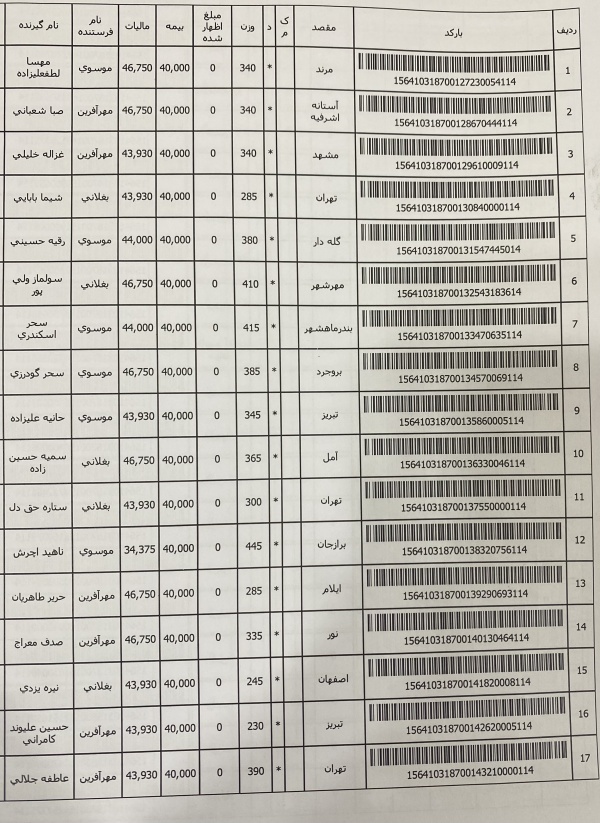 ردیف بارکد مقصد د ک م وزن مبلغ اظهار شده بیمه مالیات نام فرستنده نام گیرنده
1 156410318700127230054114 مرند * 340 0 40,000 46,750 موسوي مهسا لطفعليزاده
2 156410318700128670444114 آستانه اشرفیه * 340 0 40,000 46,750 مهرآفرین صبا شعباني
3 156410318700129610009114 مشهد * 340 0 40,000 43,930 مهرآفرین غزاله خلیلي
4 156410318700130840000114 تهران * 285 0 40,000 43,930 بغلاني شیما بابایي
5 156410318700131547445014 گله دار * 380 0 40,000 44,000 موسوي رقیه حسیني
6 156410318700132543183614 مهرشهر * 410 0 40,000 46,750 بغلاني سولماز ولي پور
7 156410318700133470635114 بندرماهشهر * 415 0 40,000 44,000 موسوي سحر اسکندري
8 156410318700134570069114 بروجرد * 385 0 40,000 46,750 موسوي سحر گودرزي
9 156410318700135860005114 تبریز * 345 0 40,000 43,930 موسوي حانیه علیزاده
10 156410318700136330046114 آمل * 365 0 40,000 46,750 بغلاني سمیه حسین زاده
11 156410318700137550000114 تهران * 300 0 40,000 43,930 بغلاني ستاره حق دل
12 156410318700138320756114 برازجان * 445 0 40,000 34,375 موسوي ناهید اچرش
13 156410318700139290693114 ایلام * 285 0 40,000 46,750 مهرآفرین حریر طاهریان
14 156410318700140130464114 نور * 335 0 40,000 46,750 مهرآفرین صدف معراج
15 156410318700141820008114 اصفهان * 245 0 40,000 43,930 بغلاني نیره یزدي
16 156410318700142620005114 تبریز * 230 0 40,000 43,930 مهرآفرین حسین علیوند کامراني
17 156410318700143210000114 تهران * 390 0 40,000 43,930 مهرآفرین عاطفه جلالي